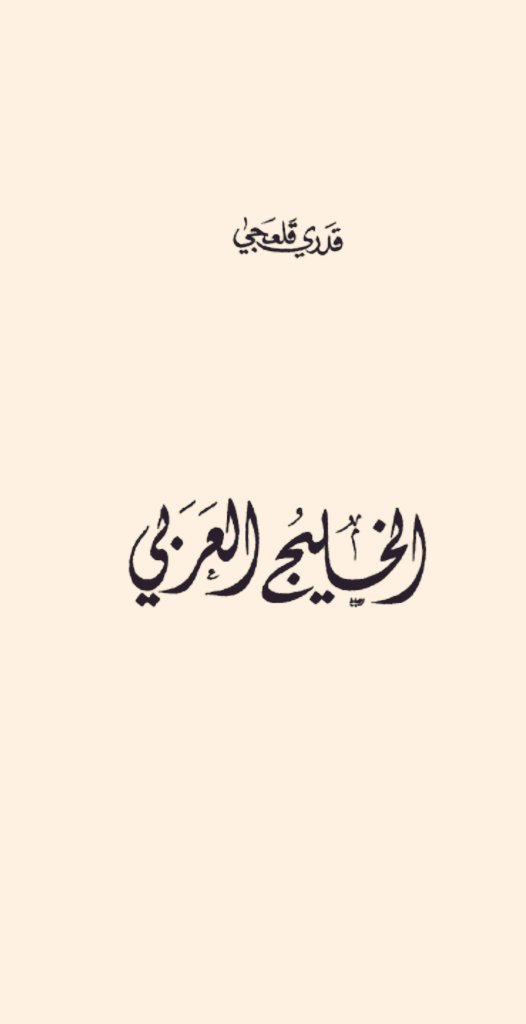 قَدَري قَلعَجي
الخليجُ العَرَبي